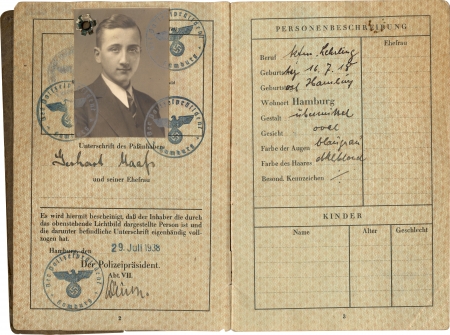 Unterschrift des Paßinhabers
Gerhart Maaß
und seiner Ehefrau
Es wird hiermit bescheinigt, daß der Inhaber die durch
das obenstehende Lichtbild dargestellte Person ist und
die darunter befindliche Unterschrift eigenhändig voll-
zogen hat.
Hamburg, den 29. Juli 1938
Der Polizeipräsident.
Abt. VII.
2
PERSONENBESCHREIBUNG
Ehefrau
Beruf
Geburtstag 16.7.18
Geburtsort Hamburg
Wohnort Hamburg
Gestalt übermittel
Gesicht oval
Farbe der Augen blaugrau
Farbe des Haares dklblond
Besond. Kennzeichen /
KINDER
Name Alter Geschlecht
3
Der Polizeipräsident
Hamburg